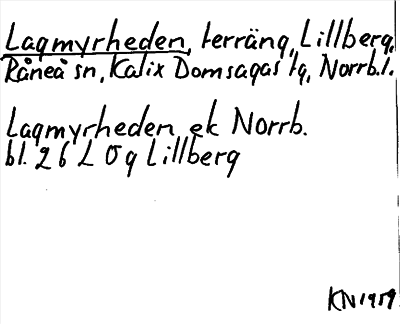 Lagmyrheden, terräng, Lillberg,
Råneå sn, Kalix Domsagas tg, Norrb.l.
Lagmyrheden ek Norrb.
bl. 26 L Ö g Lillberg
KN 1959